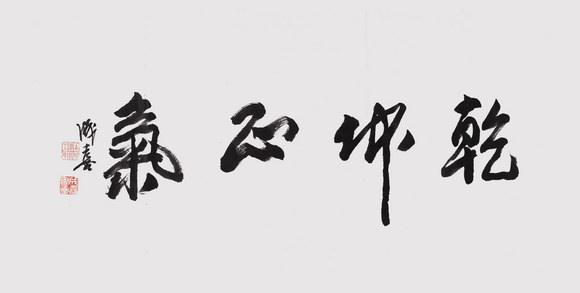 乾坤正氣
喜